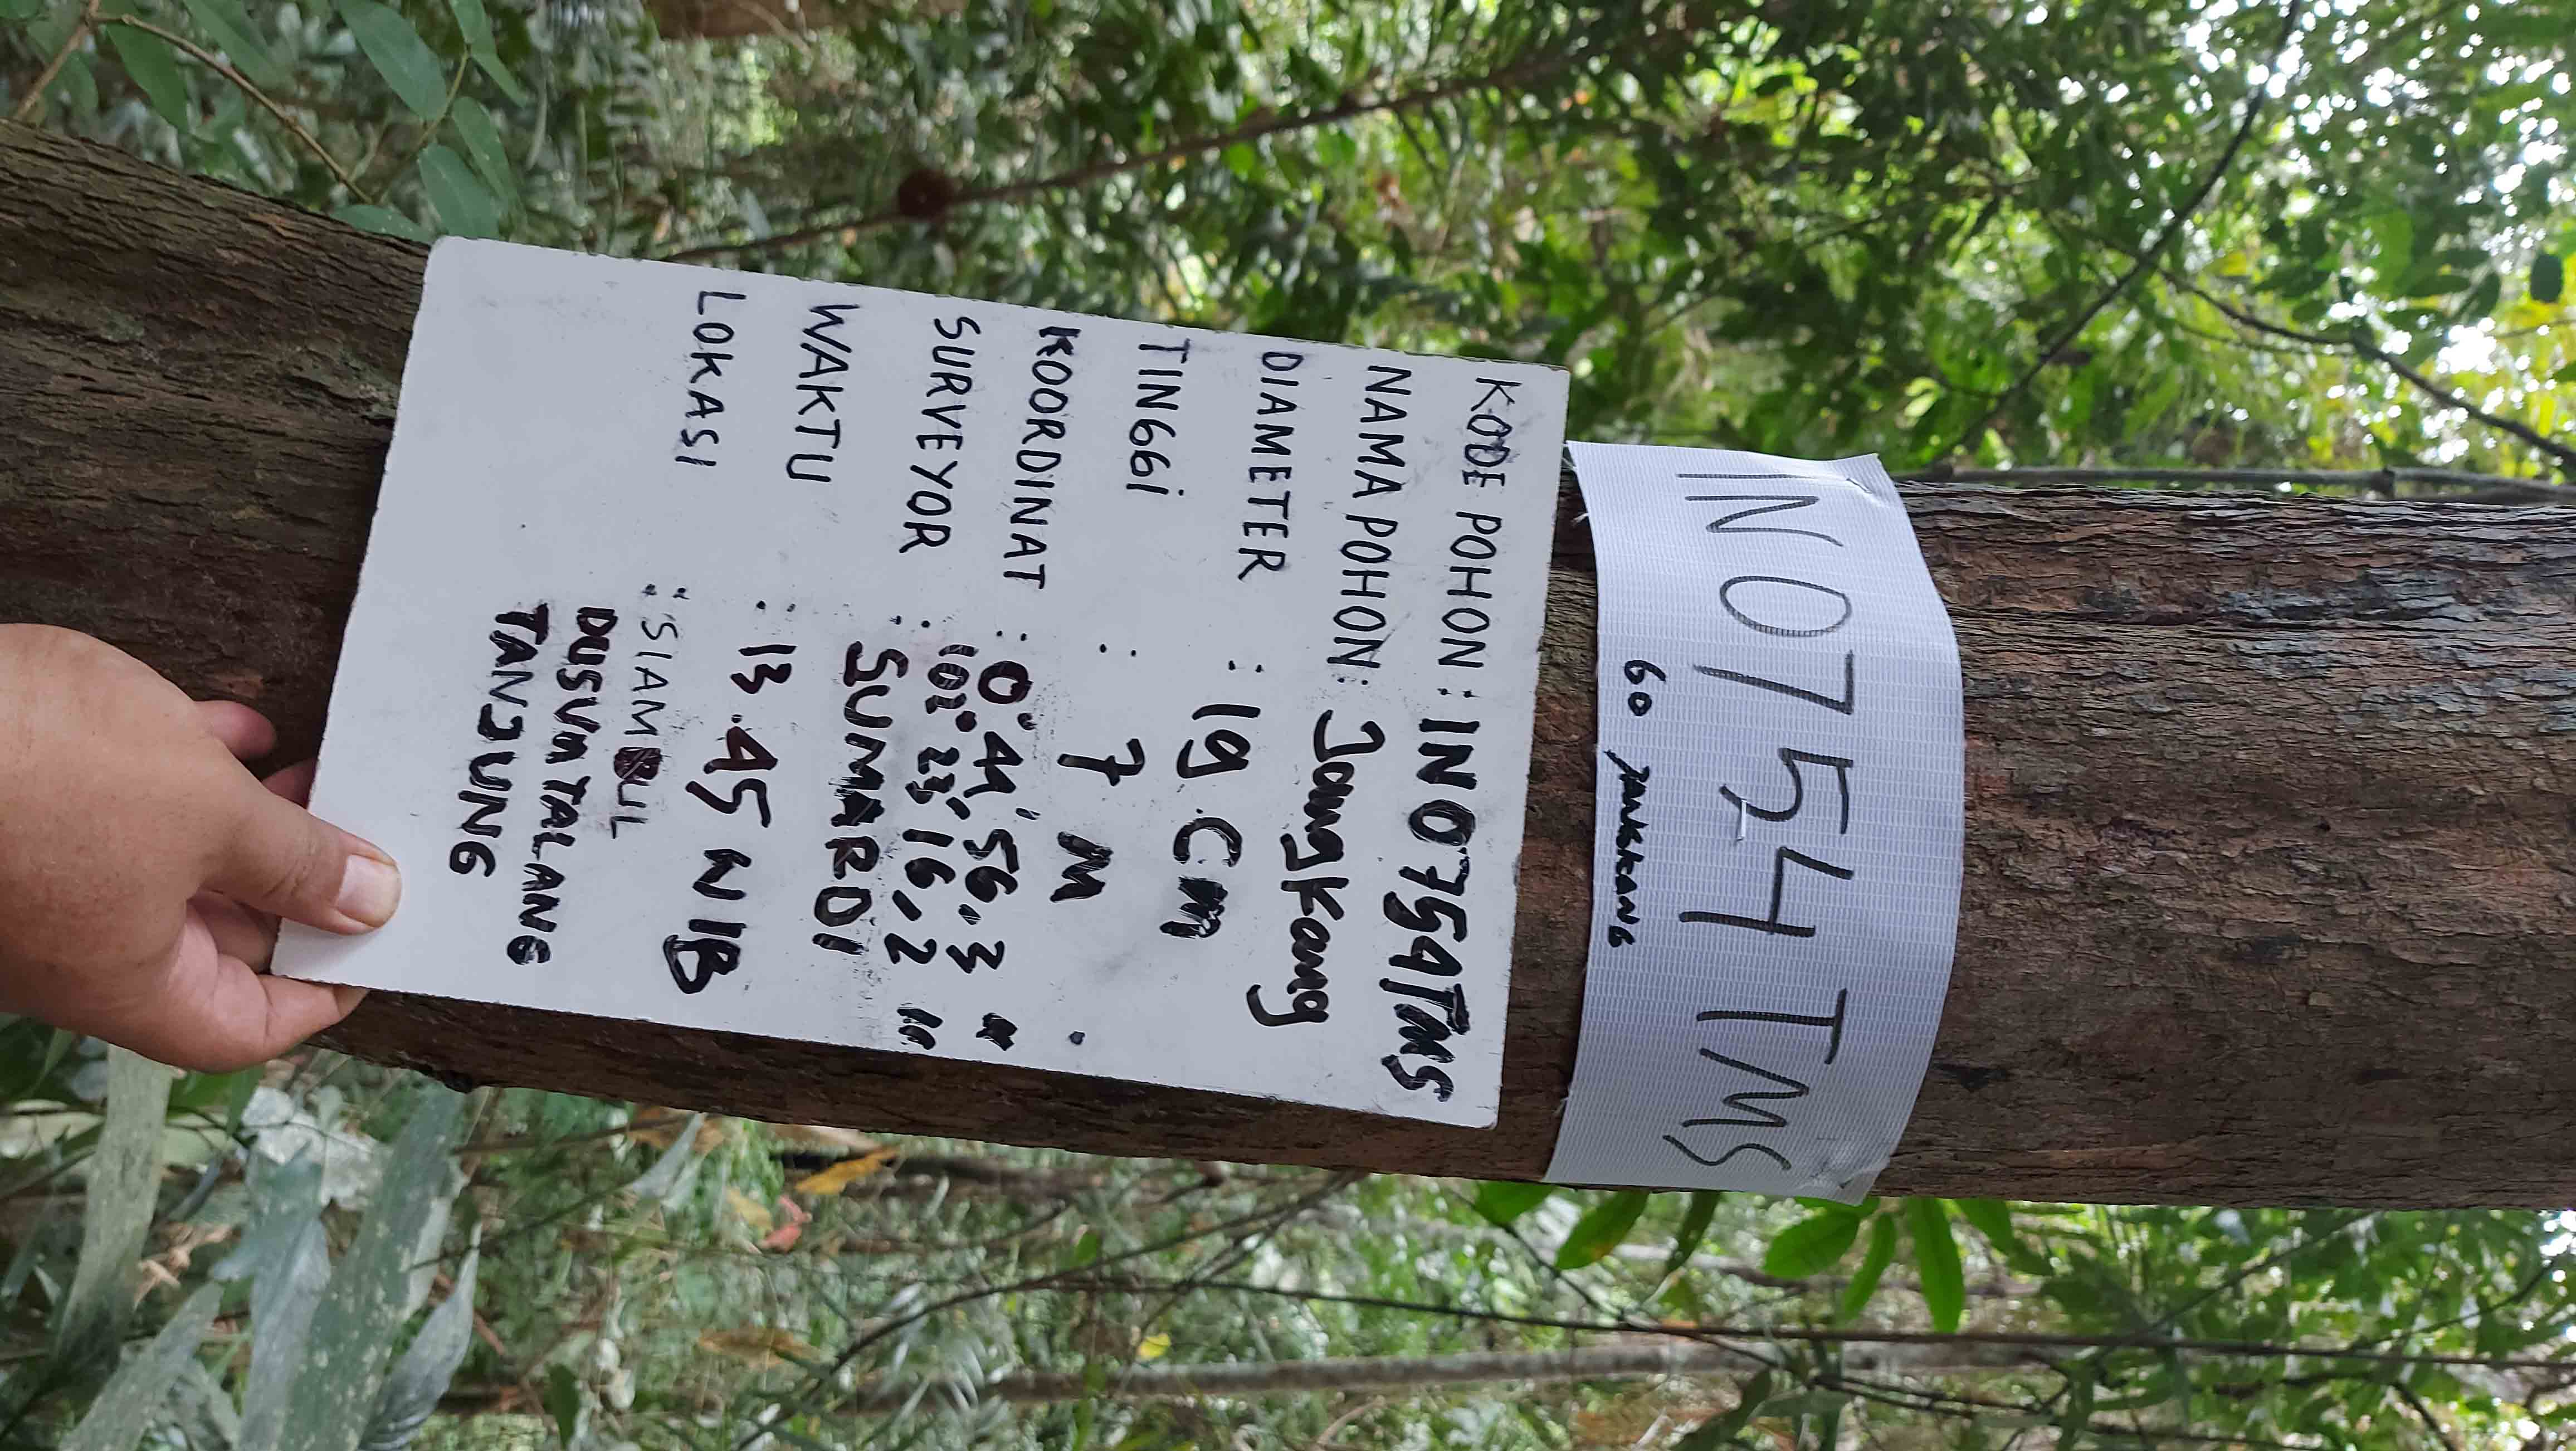 IN0754TMS
60 JANGKANG
KODE POHON : IN0754TMS
NAMA POHON : Jangkang
DIAMETER : 19 Cm
TINGGi : 7 M
KOORDINAT : 0° 44' 56,3 "
102° 23' 16,2 "
SURVEYOR : SUMARDI
WAKTU : 13.45 WIB
LOKASI : SIAMBUL
DUSUN TALANG
TANJUNG